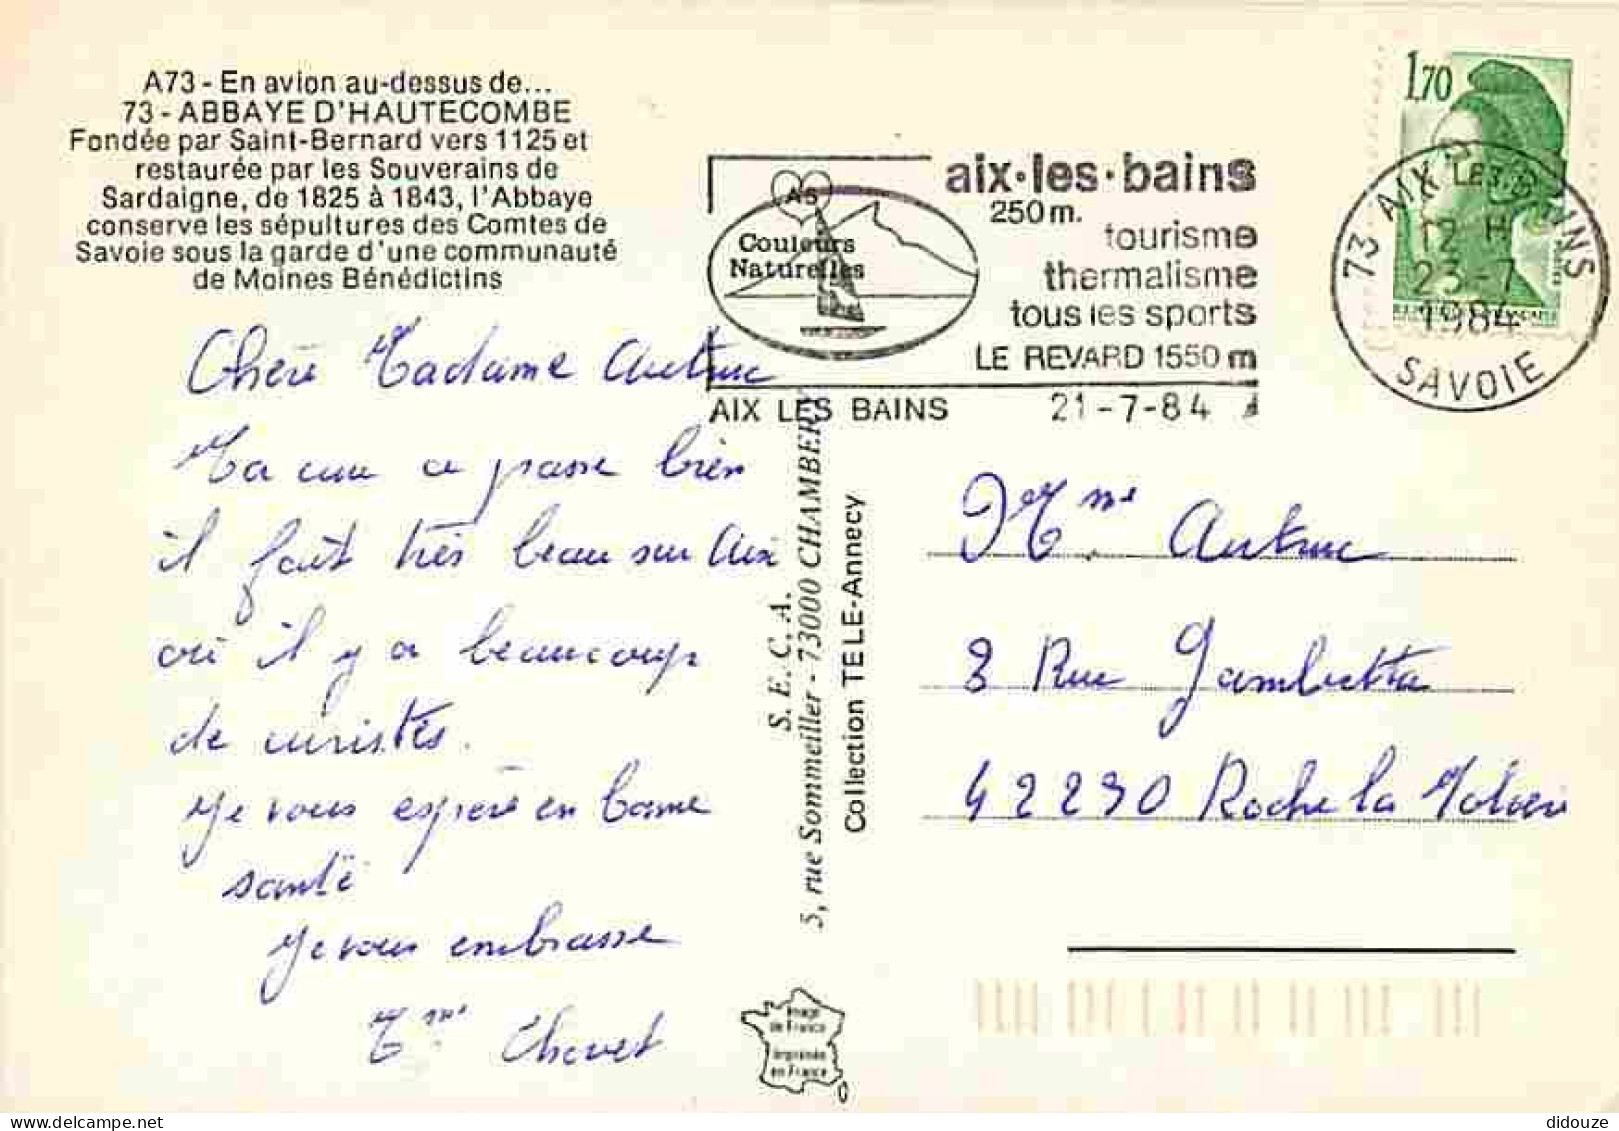 A73 - En avion au-dessus de...
73 - ABBAYE D'HAUTECOMBE
Fondée par Saint-Bernard vers 1125 et
restaurée par les Souverains de
Sardaigne, de 1825 à 1843, l'Abbaye
conserve les sépultures des Comtes de
Savoie sous la garde d'une communauté
de Moines Bénédictins
Chère Madame Autruc
Ma cure ce passe bien
il fait très beau sur Aix
où il y a beaucoup
de curistes.
Je vous espère en bonne
santé
Je vous embrasse
Mme Chovet
S. E. C. A.
5, rue Sommeiller - 73000 CHAMBERY
Collection TELE-Annecy
Image
de France
Imprimée
en France
Couleurs
Naturelles
aix·les·bains
250m.
tourisme
thermalisme
tous les sports
LE REVARD 1550 m
AIX LES BAINS 21-7-84
1,70
73 AIX LES BAINS
12 H
23-7
1984
SAVOIE
Mme Autruc
8 Rue Gambetta
42230 Roche la Molière
didouze